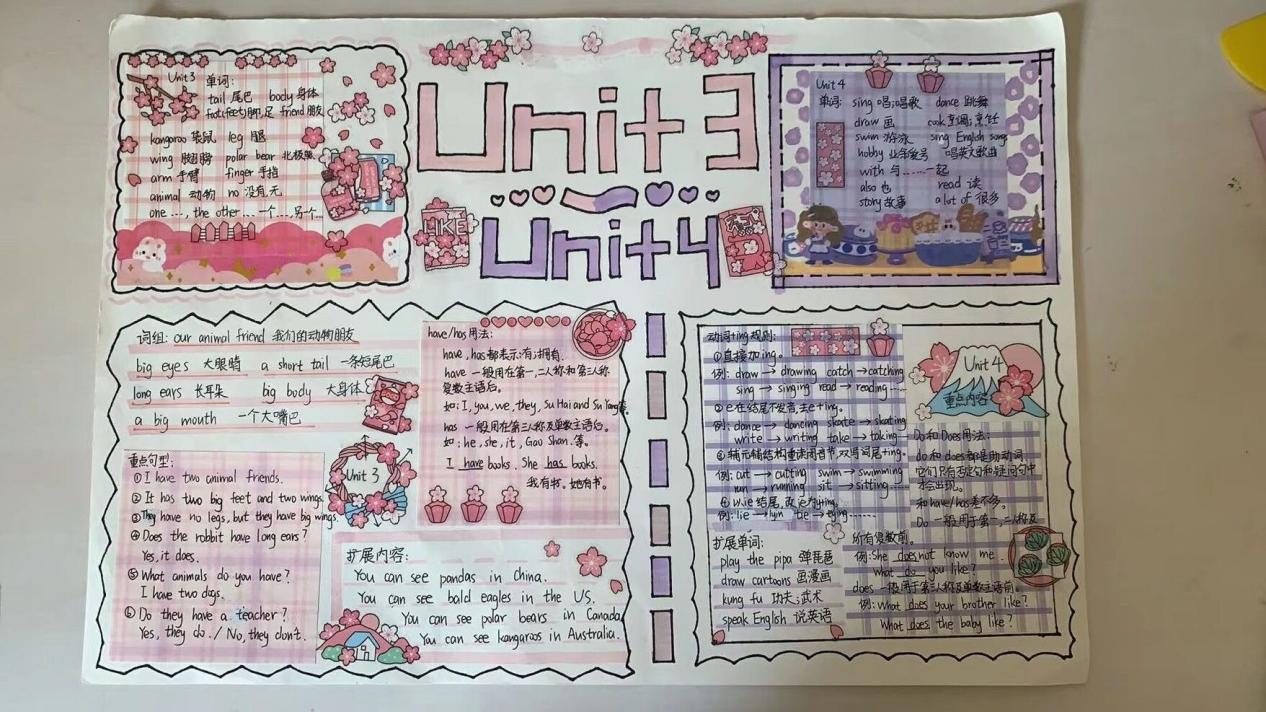 Unit 3
Unit 4
Unit3 单词:
tail 尾巴 body 身体
foot(feet)脚,足 friend 朋友
kangaroo 袋鼠 leg 腿
wing 翅膀 polar bear 北极熊
arm 手臂 finger 手指
animal 动物 no 没有,无
one ..., the other... 一个...,另一个...
LIKE
Unit 4
单词: sing 唱;唱歌 dance 跳舞
draw 画 cook 烹调;烹饪
swim 游泳 sing English songs
hobby 业余爱好 唱英文歌曲
with 与......一起
also 也 read 读
story 故事 a lot of 很多
词组: our animal friend 我们的动物朋友
big eyes 大眼睛 a short tail 一条短尾巴
long ears 长耳朵 big body 大身体
a big mouth 一个大嘴巴
重点句型:
①I have two animal friends.
②It has two big feet and two wings.
③They have no legs, but they have big wings.
④Does the rabbit have long ears?
Yes, it does.
⑤What animals do you have?
I have two dogs.
⑥Do they have a teacher?
Yes, they do. / No, they don't.
Unit 3
have/has用法:
have, has都表示:有;拥有.
have 一般用在第一,二人称和第三人称
复数主语后。
如: I, you, we, they, Su Hai and Su Yang等。
has 一般用在第三人称及单数主语后。
如: he, she, it, Gao Shan. 等。
I have books. She has books.
我有书。她有书。
扩展内容:
You can see pandas in China.
You can see bald eagles in the US.
You can see polar bears in Canada
You can see kangaroos in Australia.
动词+ing规则:
①直接加ing。
例: draw → drawing catch → catching
sing → singing read → reading.....
②e在结尾不发音,去e+ing。
例: dance → dancing skate → skating
write → writing take → taking
辅元辅结构重读闭音节,双写词尾+ing。
例: cut → cutting swim → swimming
run → running sit → sitting.....
ie结尾,改ie为y+ing.
例: lie → lyin tie →
扩展单词:
play the pipa 弹琵琶
draw cartoons 画漫画
kung fu 功夫;武术
speak English 说英语
Unit 4
重点内容
Do和Does用法:
do 和 does 都是助动词
它们只有否定句和疑问句中
才会出现。
和have/has差不多。
Do 一般用于第一,二人称及
所有复数前。
例: She does not know me.
What do you like?
does 一般用于第三人称及单数主语前。
例: What does your brother like?
What does the baby like?